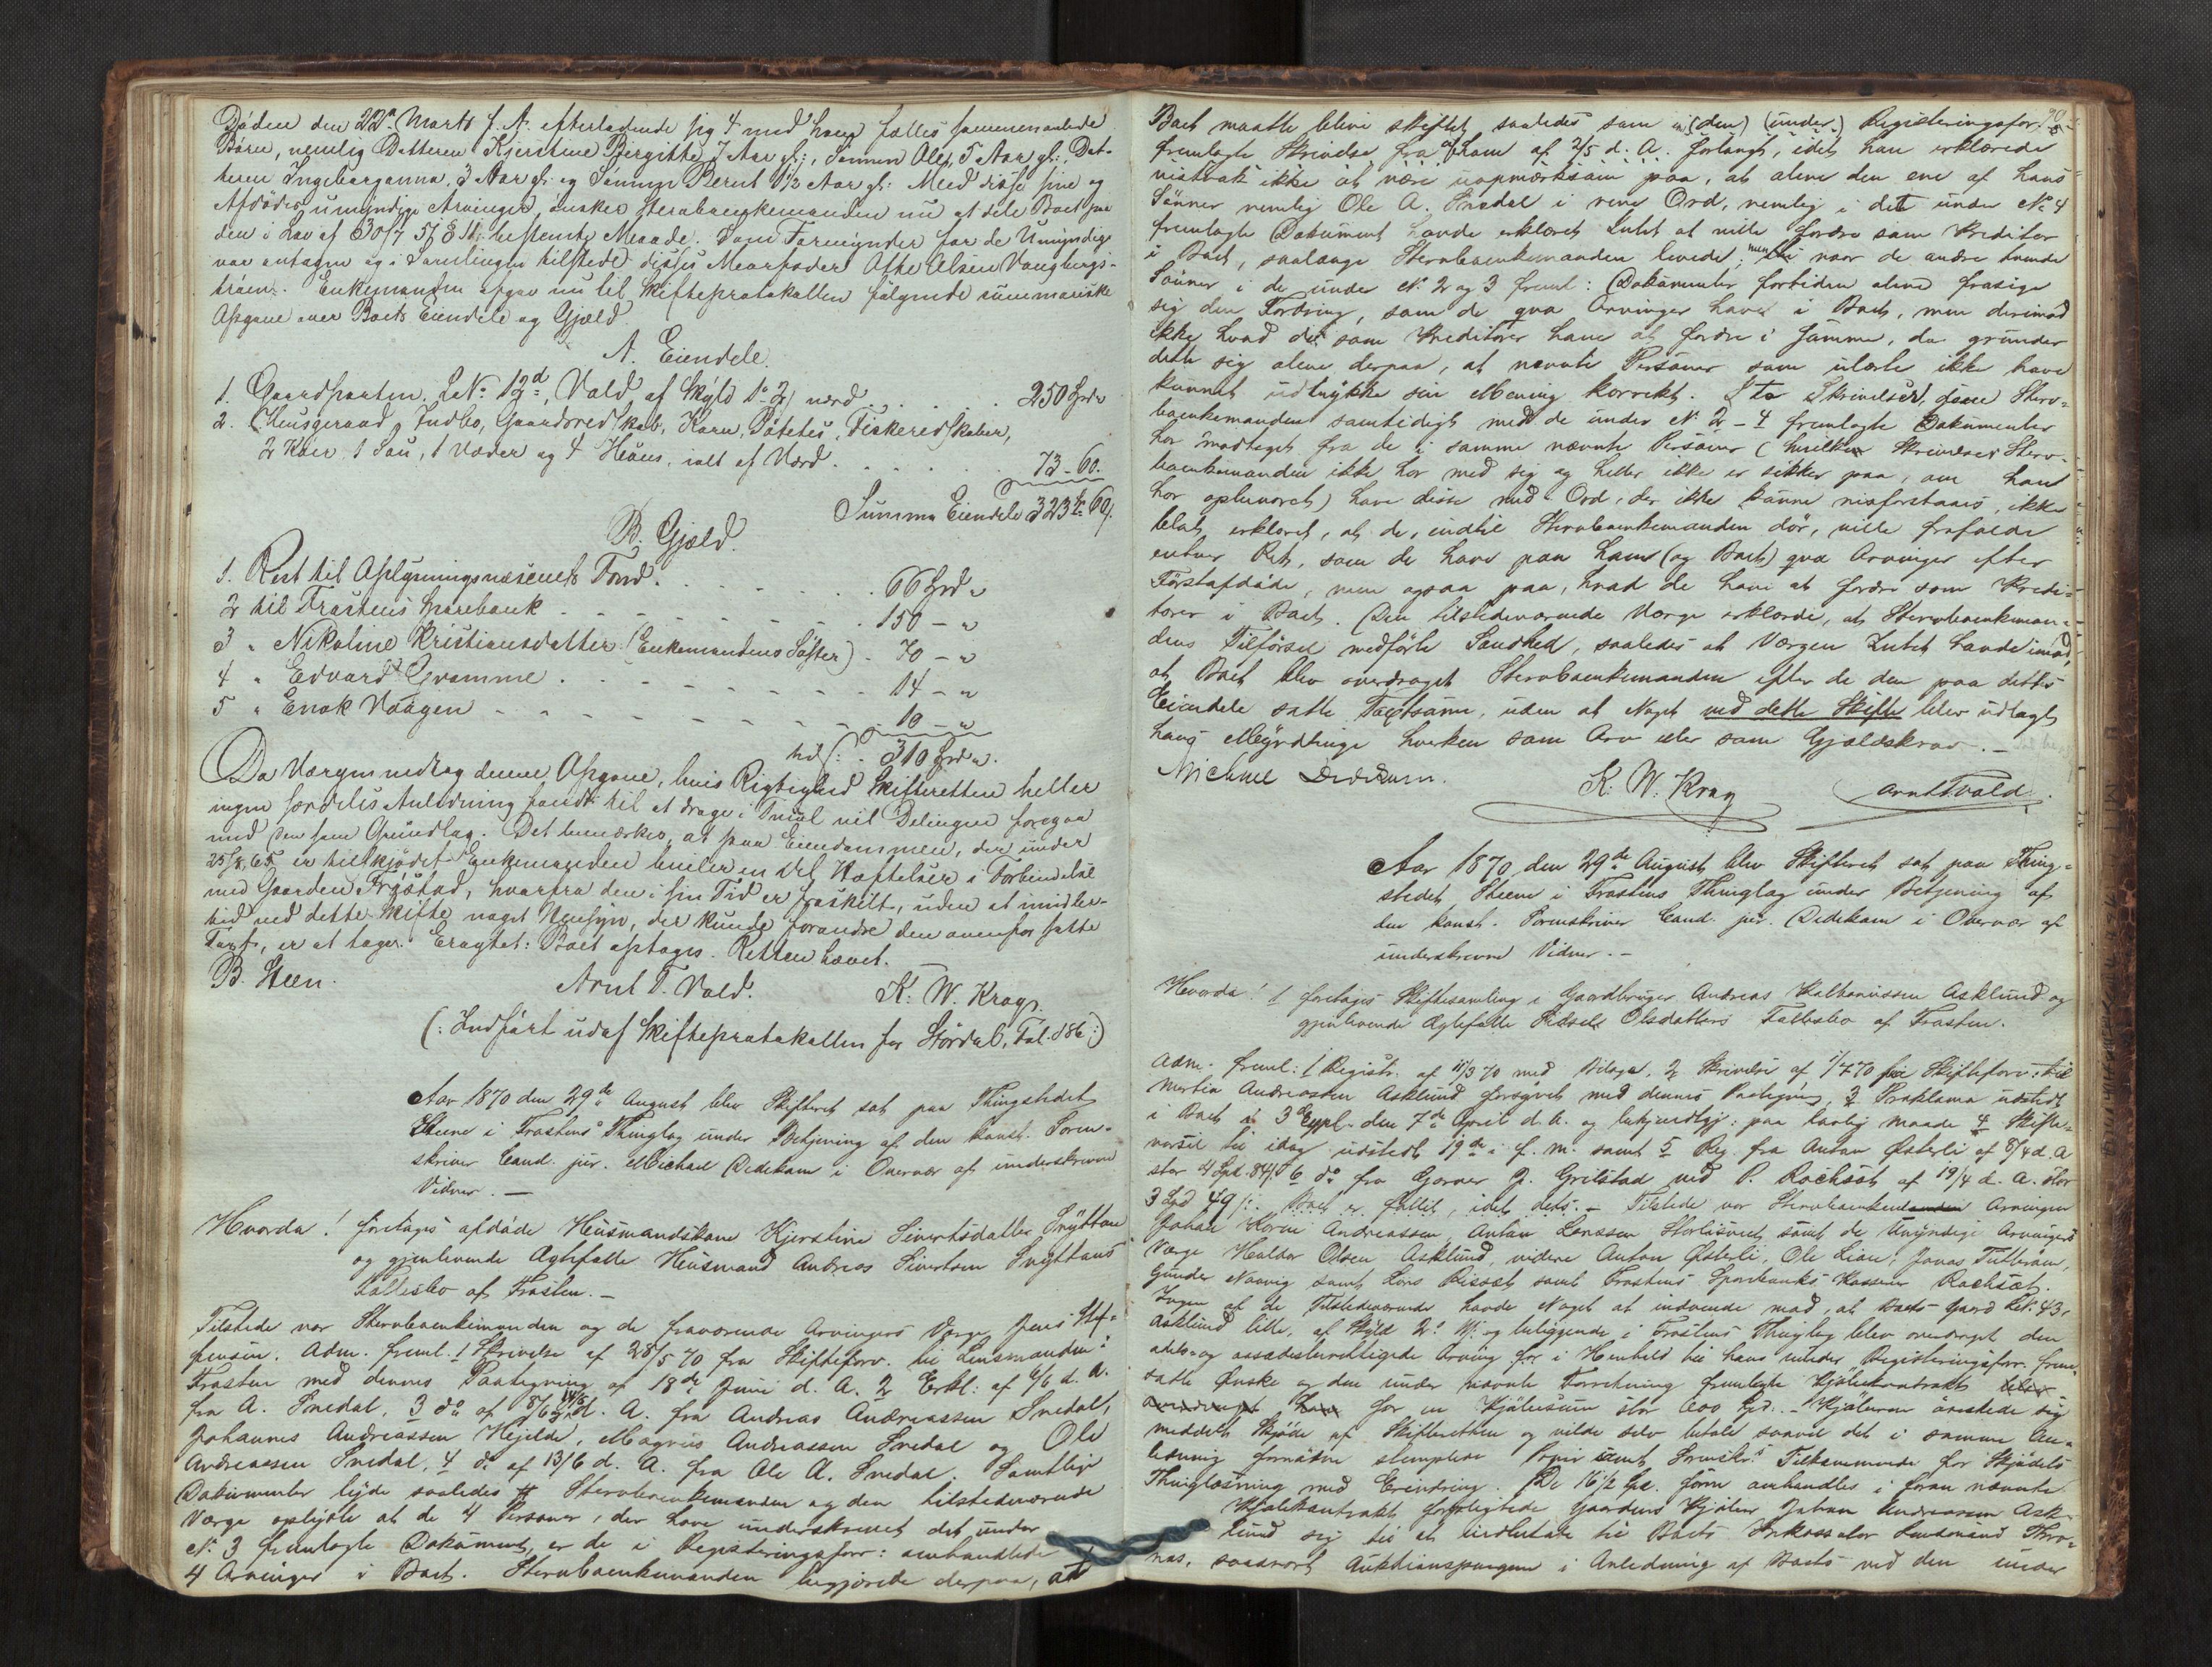 Døden den 22de Marts f. A. efterladende sig 4 med ham fælles sammenavlede
Børn, nemlig Datteren Kjerstine Birgitte 7 Aar gl:, Sønnen Ole, 5 Aar gl:, Dat-
teren Ingeborganna, 3 Aar gl: og Sønnen Bernt 1½ Aar gl: Med disse sine og
Afdødes umyndige Arvinger ønsker Stervboenkemanden nu at dele Boet paa
den i Lov af 30/7 51 § 11 bestemte Maade. Som Formynder for de Umyndige
var antagen og i Samlingen tilstede disses Morfader Atke Olsen Vangberg-
trøen. Enkemanden opgav nu til Skifteprotokollen følgende summariske
Opgave over Boets Eiendele og Gjæld
A. Eiendele.
1. Gaardparten LNo 12d, Vold af Skyld 1 2 værd . . . . 250 Spd "
2. Husgeraad, Indbo, Gaardsredskab, Korn, Potetes, Fiskeredskaber,
2 Køer 1 Sau, 1 Væder og 4 Høns, ialt af Værd . . . . 73 - 60.
Summa Eiendele 323 60
B. Gjæld.
1. Rest til Oplysningsvæsenets Fond . . . . 66 Spd "
2 til Frostens Sparebank . . . . 150 - "
3 " Nikoline Kristiansdatter (Enkemandens Søster) . 70 - "
4 " Edvard Gramme . . . . 14 - "
5 " Enok Vaagen . . . . 10 - "
310 Spd ".
Da Værgen vedtog denne Opgave, hvis Rigtighed Skifteretten heller
ingen særdeles Anledning fandt til at drage i Tvivl vil Delingen foregaa
med den som Grundlag. Det bemærkes, at paa Eiendommen, der under
25/8 65 er tilskjødet Enkemanden hviler en Del Hæftelser i Forbindelse
med Gaarden Frøstad, hvorfra den i sin Tid er fraskilt, uden at imidler-
tid ved dette Skifte noget Hensyn, der kunde forandre den ovenfor satte
Taxt, er at tage. Eragtet: Boet optages. Retten hævet.
B. Steen. Arnt T. Vold. K. W. Krog.
(: Indført udaf Skifteprotokollen for Størdal, Fol. 186 :)
Aar 1870 den 29de August blev Skifteret sat paa Thingstedet
Steene i Frostens Thinglag under Betjening af den konst. Soren-
skriver Cand. jur. Michael Didekam i Overvær af underskrevne
Vidner. -
Hvorda! foretages afdøde Husmandskone Kjerstine Sivertsdatter
og gjenlevende Ægtefælle Husmand Andreas Sivertsen
Fællesbo af Frosten. -
Tilstede var Stervboenkemanden og de fraværende Arvingers Værge Jens Stef-
fensen. Adm. freml. 1 Skrivelse af 28/5 70 fra Skifteforv. til Lensmanden i
Frosten med dennes Paategning af 18de Juni d. A. 2 Erkl: af 6/6 d. A.
fra A. Snedal, 3 do af 8/6 14/6 d. A. fra Andreas Andreassen Snedal,
Johannes Andreassen Hejlde, Magnus Andreassen Snedal og Ole
Andreassen Snedal, 4 do af 13/6 d. A. fra Ole A. Snedal. Samtlige
Dokumenter lyde saaledes # Stervboenkemanden og den tilstedeværende
Værge oplyste at de 4 Personer, der have underskrevet det under
No 3 fremlagte Dokument, er de i Registeringsforr: omhandlede
4 Arvinger i Boet. Stervboenkemanden begjærede derpaa, at
Boet maatte blive skiftet saaledes som i (den) (under) Registeringsforr.
fremlagte Skrivelse fra ham af 2/5 d. A. forlangt, idet han erklærede
vistnok ikke at være uopmærksom paa, at alene den ene af hans
Sønner nemlig Ole A. Snedal i rene Ord, nemlig i det under No 4
fremlagte Dokument havde erklæret Intet at ville fordre som Kreditor
i Boet, saalænge Stervboenkemanden levede; men naar de andre trende
Sønner i de under No 2 og 3 freml: Dokumenter forbiden alene frasige
sig den Fordring, som de qva Arvinger have i Boet, men derimod
ikke hvad de som Kreditorer have at fordre i samme, da grunder
dette sig alene derpaa, at nævnte Personer som ulærte ikke have
kunnet udtrykke sin Mening korrekt. I to Skrivelser, som Sterv-
boenkemanden samtidigt med de under No 2 - 4 fremlagte Dokumenter
har modtaget fra de i samme nævnte Personer (hvilke Skrivelser Sterv-
boenkemanden ikke har med sig og heller ikke er sikker paa, om han
har opbevaret) have disse med Ord, der ikke kunne misforstaaes, ikke
blot erklæret, at de, indtil Stervboenkemanden dør, ville frafalde
enhver Ret, som de have paa ham (og Boet) qva Arvinger efter
Førstafdøde, men ogsaa paa, hvad de have at fordre som Kredi-
torer i Boet. Den tilstedeværende Værge erklærede, at Stervboenkeman-
dens Tilførsel medførte Sandhed, saaledes at Værgen Intet havde imod,
at Boet blev overdraget Stervboenkemanden efter de den paa dettes
Eiendele satte Taxtsum, uden at Noget ved dette Skifte blev udlagt
hans Myndlinge hverken som Arv eller som Gjældskrav. -
Michael Didekam. K. W. Krog Arnt T Vold.
Aar 1870 den 29de August blev Skifteret sat paa Thing-
stedet Steene i Frostens Thinglag under Betjening af
den konst. Sorenskriver Cand. jur. Didekam i Overvær af
underskrevne Vidner. -
Hvorda! foretages Skiftesamling i Gaardbruger Andreas Asklund og
gjenlevende Ægtefælle Olsdatters Fællesbo af Frosten.
Adm. freml: 1 Registr. af 11/3 70 med Bilage, 2 Skrivelse af 1/4 70 fra Skifteforv. til
Martin Andreassen Asklund forsynet med dennes Paategning, 3 Proklama udstedt
i Boet i 3 Expl. den 7de April d. A. og bekjendtgj: paa lovlig Maade 4 Skifte-
varsel til idag udstedt 19de f. M. samt 5 Reg. fra Anton Østerli af 8/4 d. A
stor 4 Spd. 84 6 do fra Garver P. Grilstad ved P. Rochset af 19/4 d. A. stor
3 Spd 49 Boet er fallit, idet dets. - Tilstede var Stervboenken Arvingen
Johan Andreassen, Anton Larssen samt de Umyndige Arvingers
Værge Haldor Olsen Asklund, videre Anton Østerli, Ole Lian, Jonas
Gunder Naavig samt Lars Rissæt samt Frostens Sparebanks Kasserer Rochset.
Ingen af de Tilstedeværende havde Noget at indvende mod, at Boets Gaard LNo 43,
Asklund lille, af Skyld 2 og beliggende i Frostens Thinglag blev overdraget den
odels- og aasædesberettigede Arving for i Henhold til hans under Registeringsforr. frem-
satte Ønske og den under nævnte Forretning fremlagte Kjøbekontrakt
for en Kjøbesum stor 600 Spd. - Kjøberen ønskede sig
meddelt Skjøde af Skifteretten og vilde selv betale saavel det i samme An-
ledning fornødne stemplede Papir samt Sorenskr:s Tilkommende for Skjødets
Thinglæsning med Erindring. De 16½ Spd. som omhandles i foran nævnte
Kjøbekontrakt forpligtede Gaardens Kjøber Johan Andreassen Ask-
lund sig til at indbetale til Boets Inkassator Lensmand
nas, saasnart Auktionspengene i Anledning af Boets ved den under